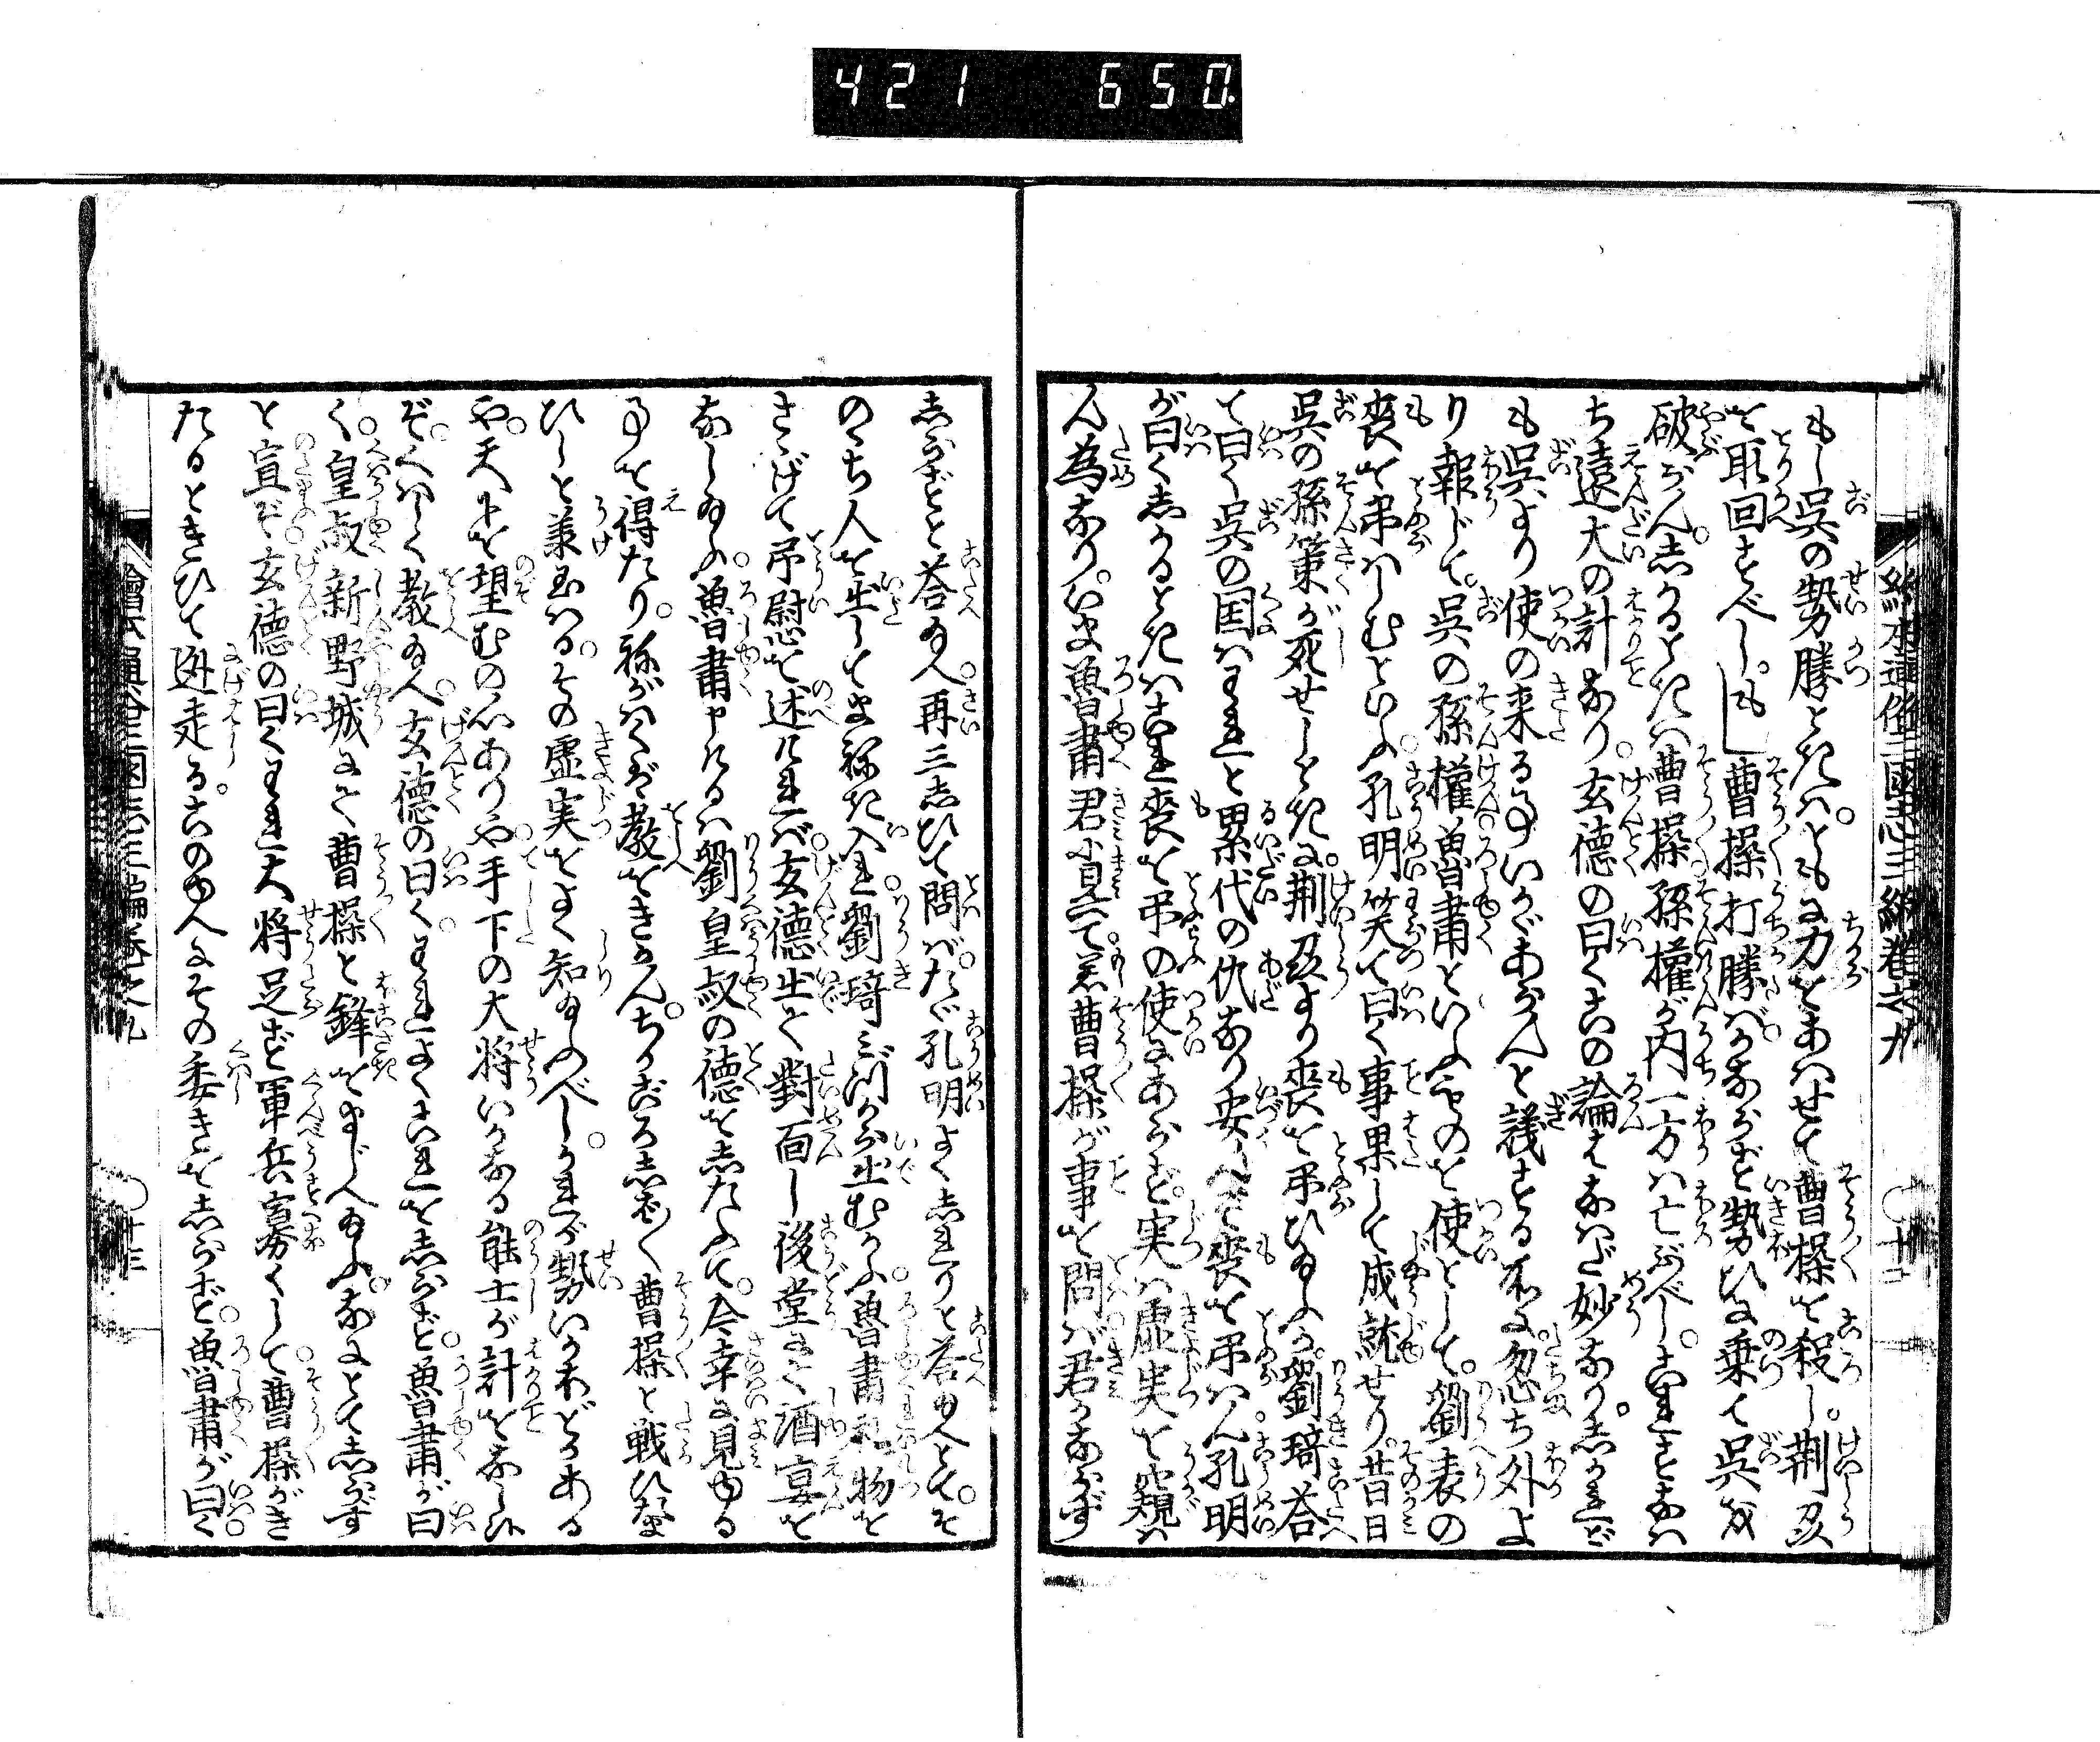 421 650
もし呉の勢勝ときは。ともに力をあはせて曹操を殺し。荆州
を取回すべし。もし曹操打勝ば。かならず勢ひに乗て呉を
破らん。しかるときは曹操孫權が内一方は亡ぶべし。これすなは
ち遠大の計なり。玄徳の曰くこの論はなはだ妙なり。しかれど
も呉より使の来る事いかゞあらんと議する所に。忽ち外よ
り報じて。呉の孫權魯肅といふものを使として。劉表の
喪を弔はしむといふ。孔明笑て曰く事果して成就せり。昔日
呉の孫策が死せしときに。荆州より喪を弔ひ給ふか。劉琦荅
て曰く呉の国はわれと累代の仇なり安んぞ喪を弔はん孔明
が曰くしかるときはこれ喪を弔の使にあらず。実は虚実を窺は
ん為なり。いま魯肅君に見へて若曹操が事を問ば君たゞ
しらずと荅給へ。再三しひて問ば。たゞ孔明よくしれりと荅給へとて。そ
のゝち人を出してまねき入れ。劉琦みづから出むかふ。魯肅礼物を
さゝげて弔慰を述ければ。玄徳出て對面し後堂にて酒宴を
なし給ふ。魯肅申けるは劉皇叔の徳をしたふて。今幸に見ゆる
事を得たり。ねがはくば教をきかん。ちかごろしば〳〵曹操と戦ひ給
ひしと羕および。その虚実をよく知給ふべし。かれが勢いかほどかある
や。天下を望むの心ありや。手下の大将いかなる能士が計をなし候
ぞ。くはしく教給へ。玄徳の曰く。われよくこれをしらず。魯肅が曰
く。皇叔新野城にて曹操と鋒をまじへ給ふ。なにとてしらず
と宣ぞ。玄徳の曰くわれ大将足ず軍兵寡くして。曹操がき
たるときひて逃走る。このゆへにその委きをしらず。魯肅が曰く。
繪本通俗三國志三編卷之九
〇十二
繪本通俗三國志三編卷之九
〇十三